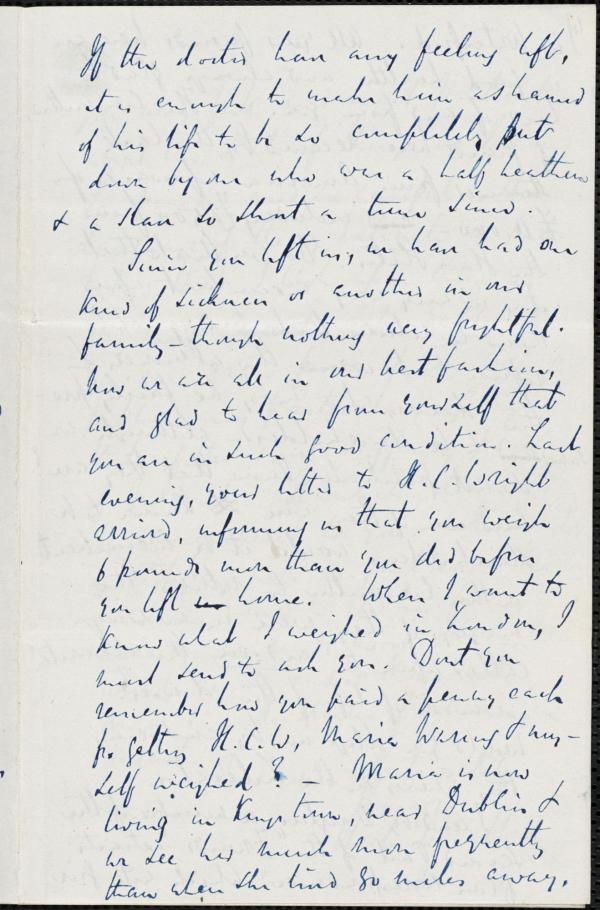 If the doctor have any feeling left,
it is enough to make him ashamed
of his life to be so completely put
down by one who was a half heathen
& a slave so short a time since.
Since you left us, we have had one
kind of sickness or another in our
family - though nothing very frightful.
Now we are all in our best fashion,
and glad to hear from yourself that
you are in such good condition. Last
evening, your letter to H.C. Wright
arrived, informing us that you weigh
6 pounds more than you did before
you left home. When I want to
know what I weighed in London, I
must send to ask you. Dont you
remember how you paid a penny each
for getting H.C.W, Maria Waring & my-
self weighed? - Maria is now
living in Kingstown, near Dublin &
we see her much more frequently
than when she lived 80 miles away.